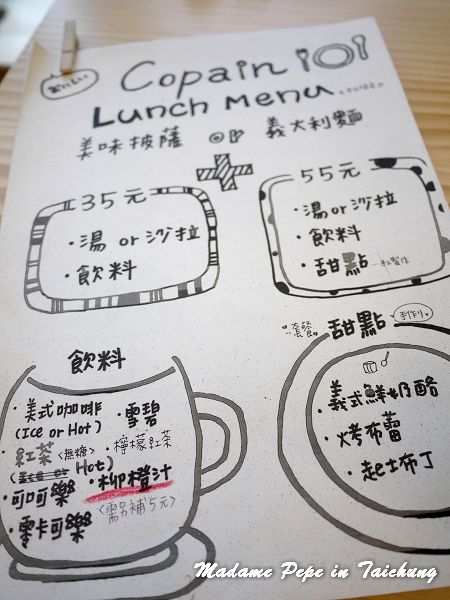 おいしい
Copain
Lunch menu
美味披薩 or 義大利麵
35元
・湯 or 沙拉
・飲料
55元
・湯 or 沙拉
・飲料
・甜點
飲料
・美式咖啡
(Ice or Hot)
紅茶〈無糖〉
Hot)
・可口可樂
・零卡可樂
・雪碧
・檸檬紅茶
・柳橙汁
〈需另補5元〉
套餐 甜點 手作り
・義式鮮奶酪
・烤布蕾
・起士布丁
Madame Pepe in Taichung